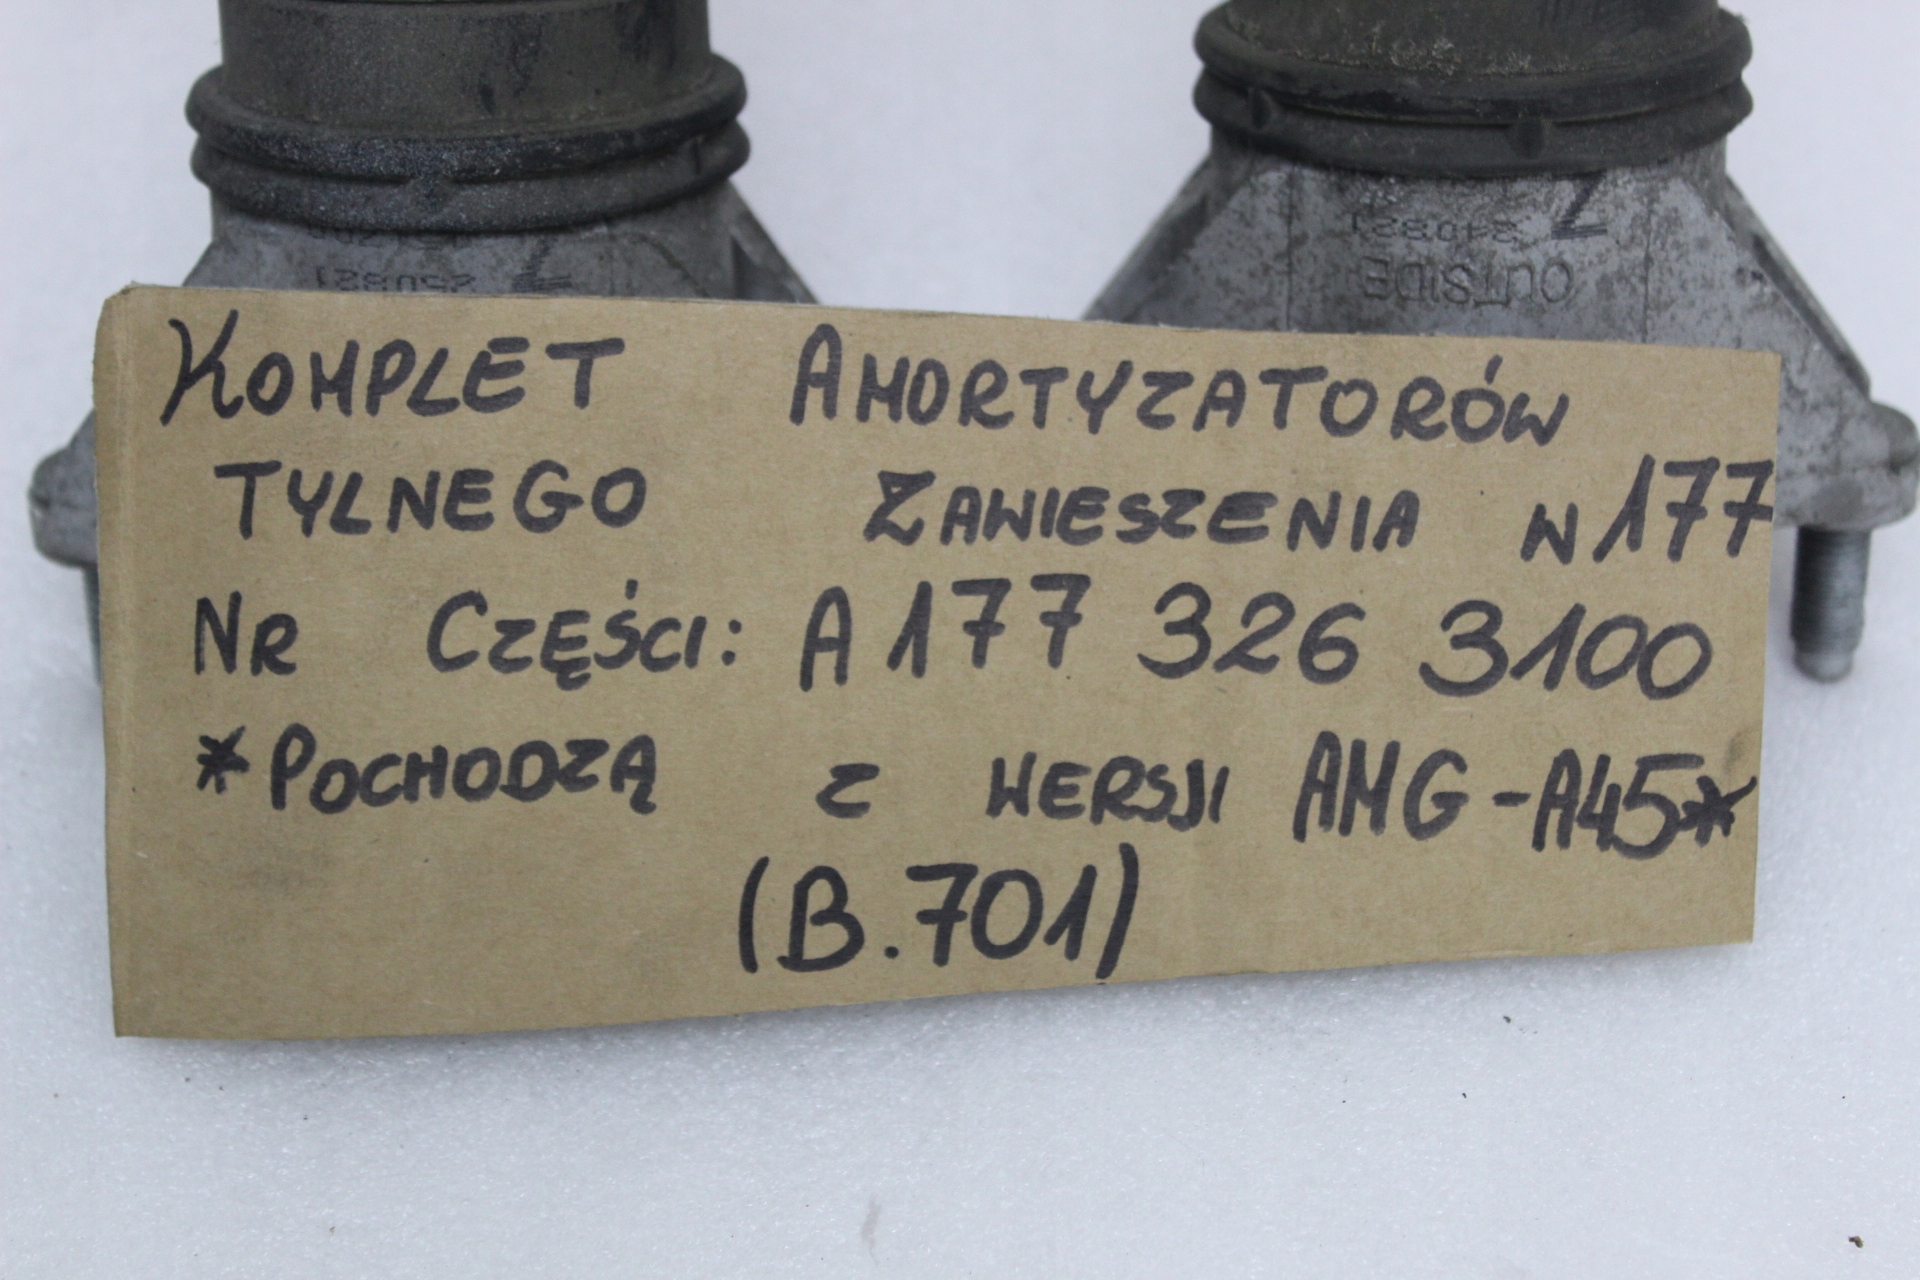 250821
240821
OUTSIDE
KOMPLET AMORTYZATORÓW
TYLNEGO ZAWIESZENIA W177
NR CZĘŚCI: A 177 326 3100
*POCHODZĄ Z WERSJI AMG-A45*
(B.701)